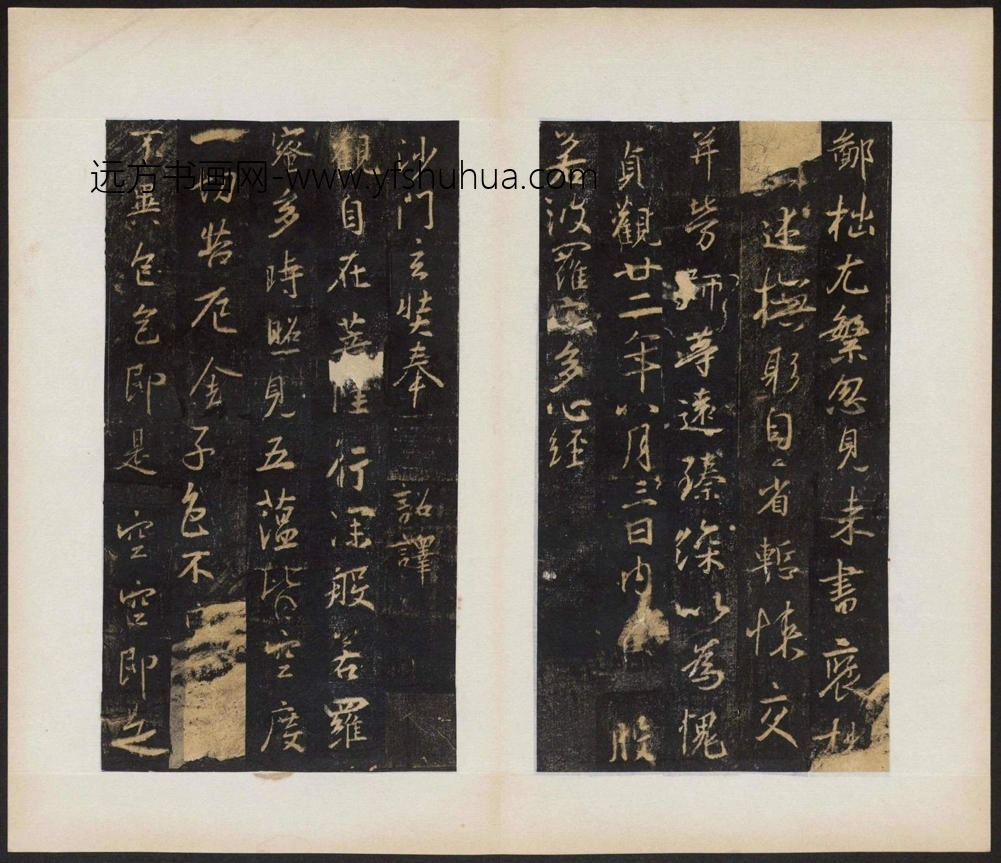 鄙拙尤繁忽見来書褒
述撫躬自省慙悚交
并勞師等遠臻深以為愧
貞觀廿二年八月三日內 般
若波羅蜜多心經
沙門玄奘奉 詔譯
觀自在菩 行深般若羅
蜜多時照見五蘊皆空度
一切苦厄舍子色不
不異色色即是空空即是
远方书画网-www.yfshuhua.com